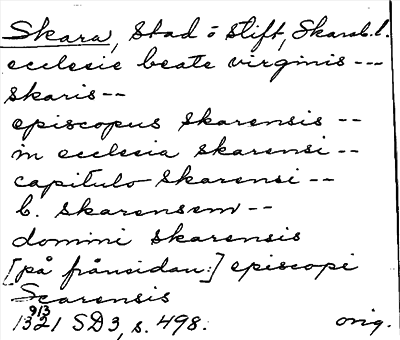 Skara, Stad o Stift, Skarab.l.
ecclesie beate virginis ---
skaris --
episcopus skarensis --
in ecclesia skarensi --
capitulo skarensi --
b. skarensem --
domini skarensis
[på frånsidan:] episcopi
Scarensis
1321 9/3 SD3, s. 498. orig.